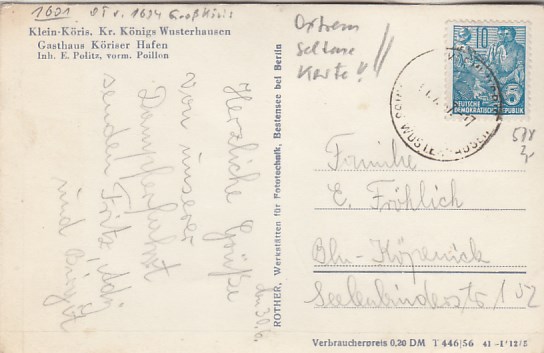 1601
Klein-Köris, Kr. Königs Wusterhausen
Gasthaus Köriser Hafen
Inh. E. Politz, vorm. Poillon
Herzliche Grüße
von unserer
Dampferfahrt
senden Fritz,
und Birgit
den 30.6.
ROTHER, Werkstätten für Fototechnik, Bestensee bei Berlin
Extrem
seltene
Karte!!
10
5
DEUTSCHE
DEMOKRATISCHE REPUBLIK
WUSTERHAUSEN
Familie
E. Fröhlich
Bln-Köpenick
Seelenbinderstr 152
Verbraucherpreis 0,20 DM T 446/56 41-1'12/5